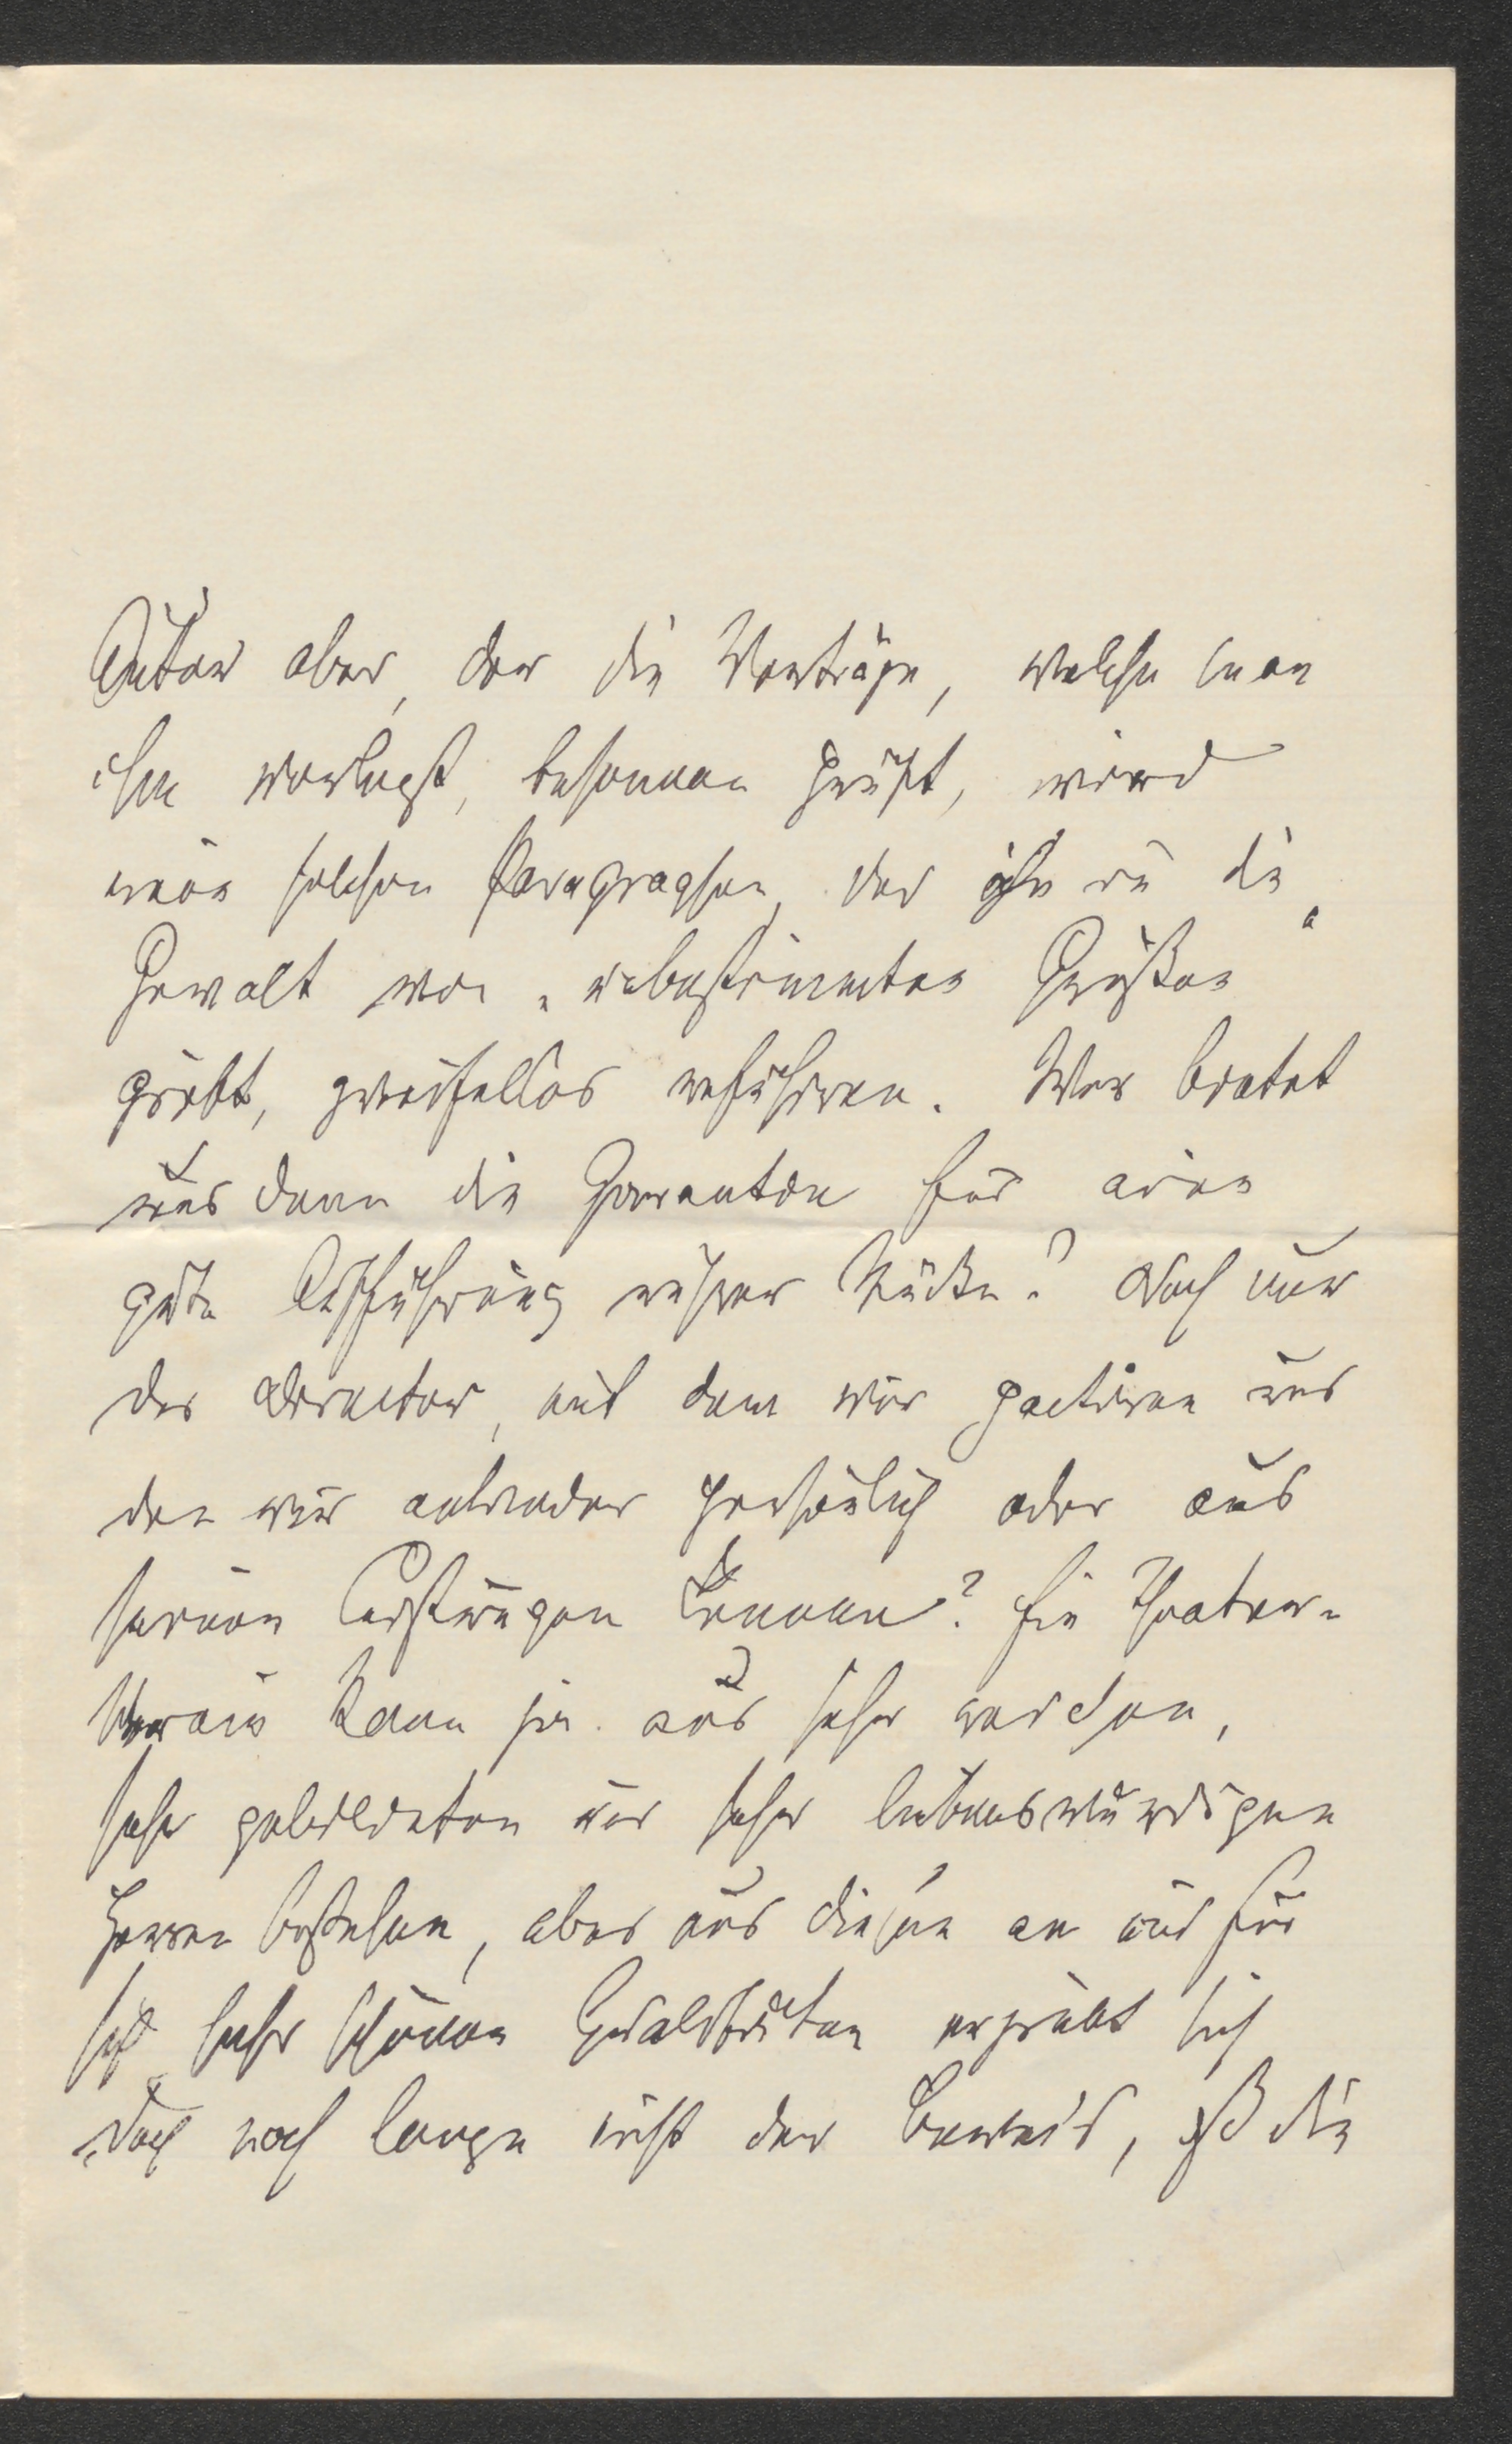 Autor aber, der die Verträge, welche man
ihm vorlegt, besonnen prüft, wird
einen solchen Paragraphen, der ihn in die
Gewalt von „unbestimmten Größen“
giebt, zweifellos refüsiren. Wer bietet
uns denn die Garantie für eine
gute Aufführung unsrer Stücke? Doch nur
der Director, mit dem wir pactiren und
den wir entweder persönlich oder aus
seinen Leistungen kennen? Ein Theater-
Verein kann ja aus sehr reichen,
sehr gebildeten und sehr liebenswürdigen
Herren bestehen, aber aus diesen an und für
sich sehr schönen Qualitäten ergiebt sich
doch noch lange nicht der Beweis, daß die